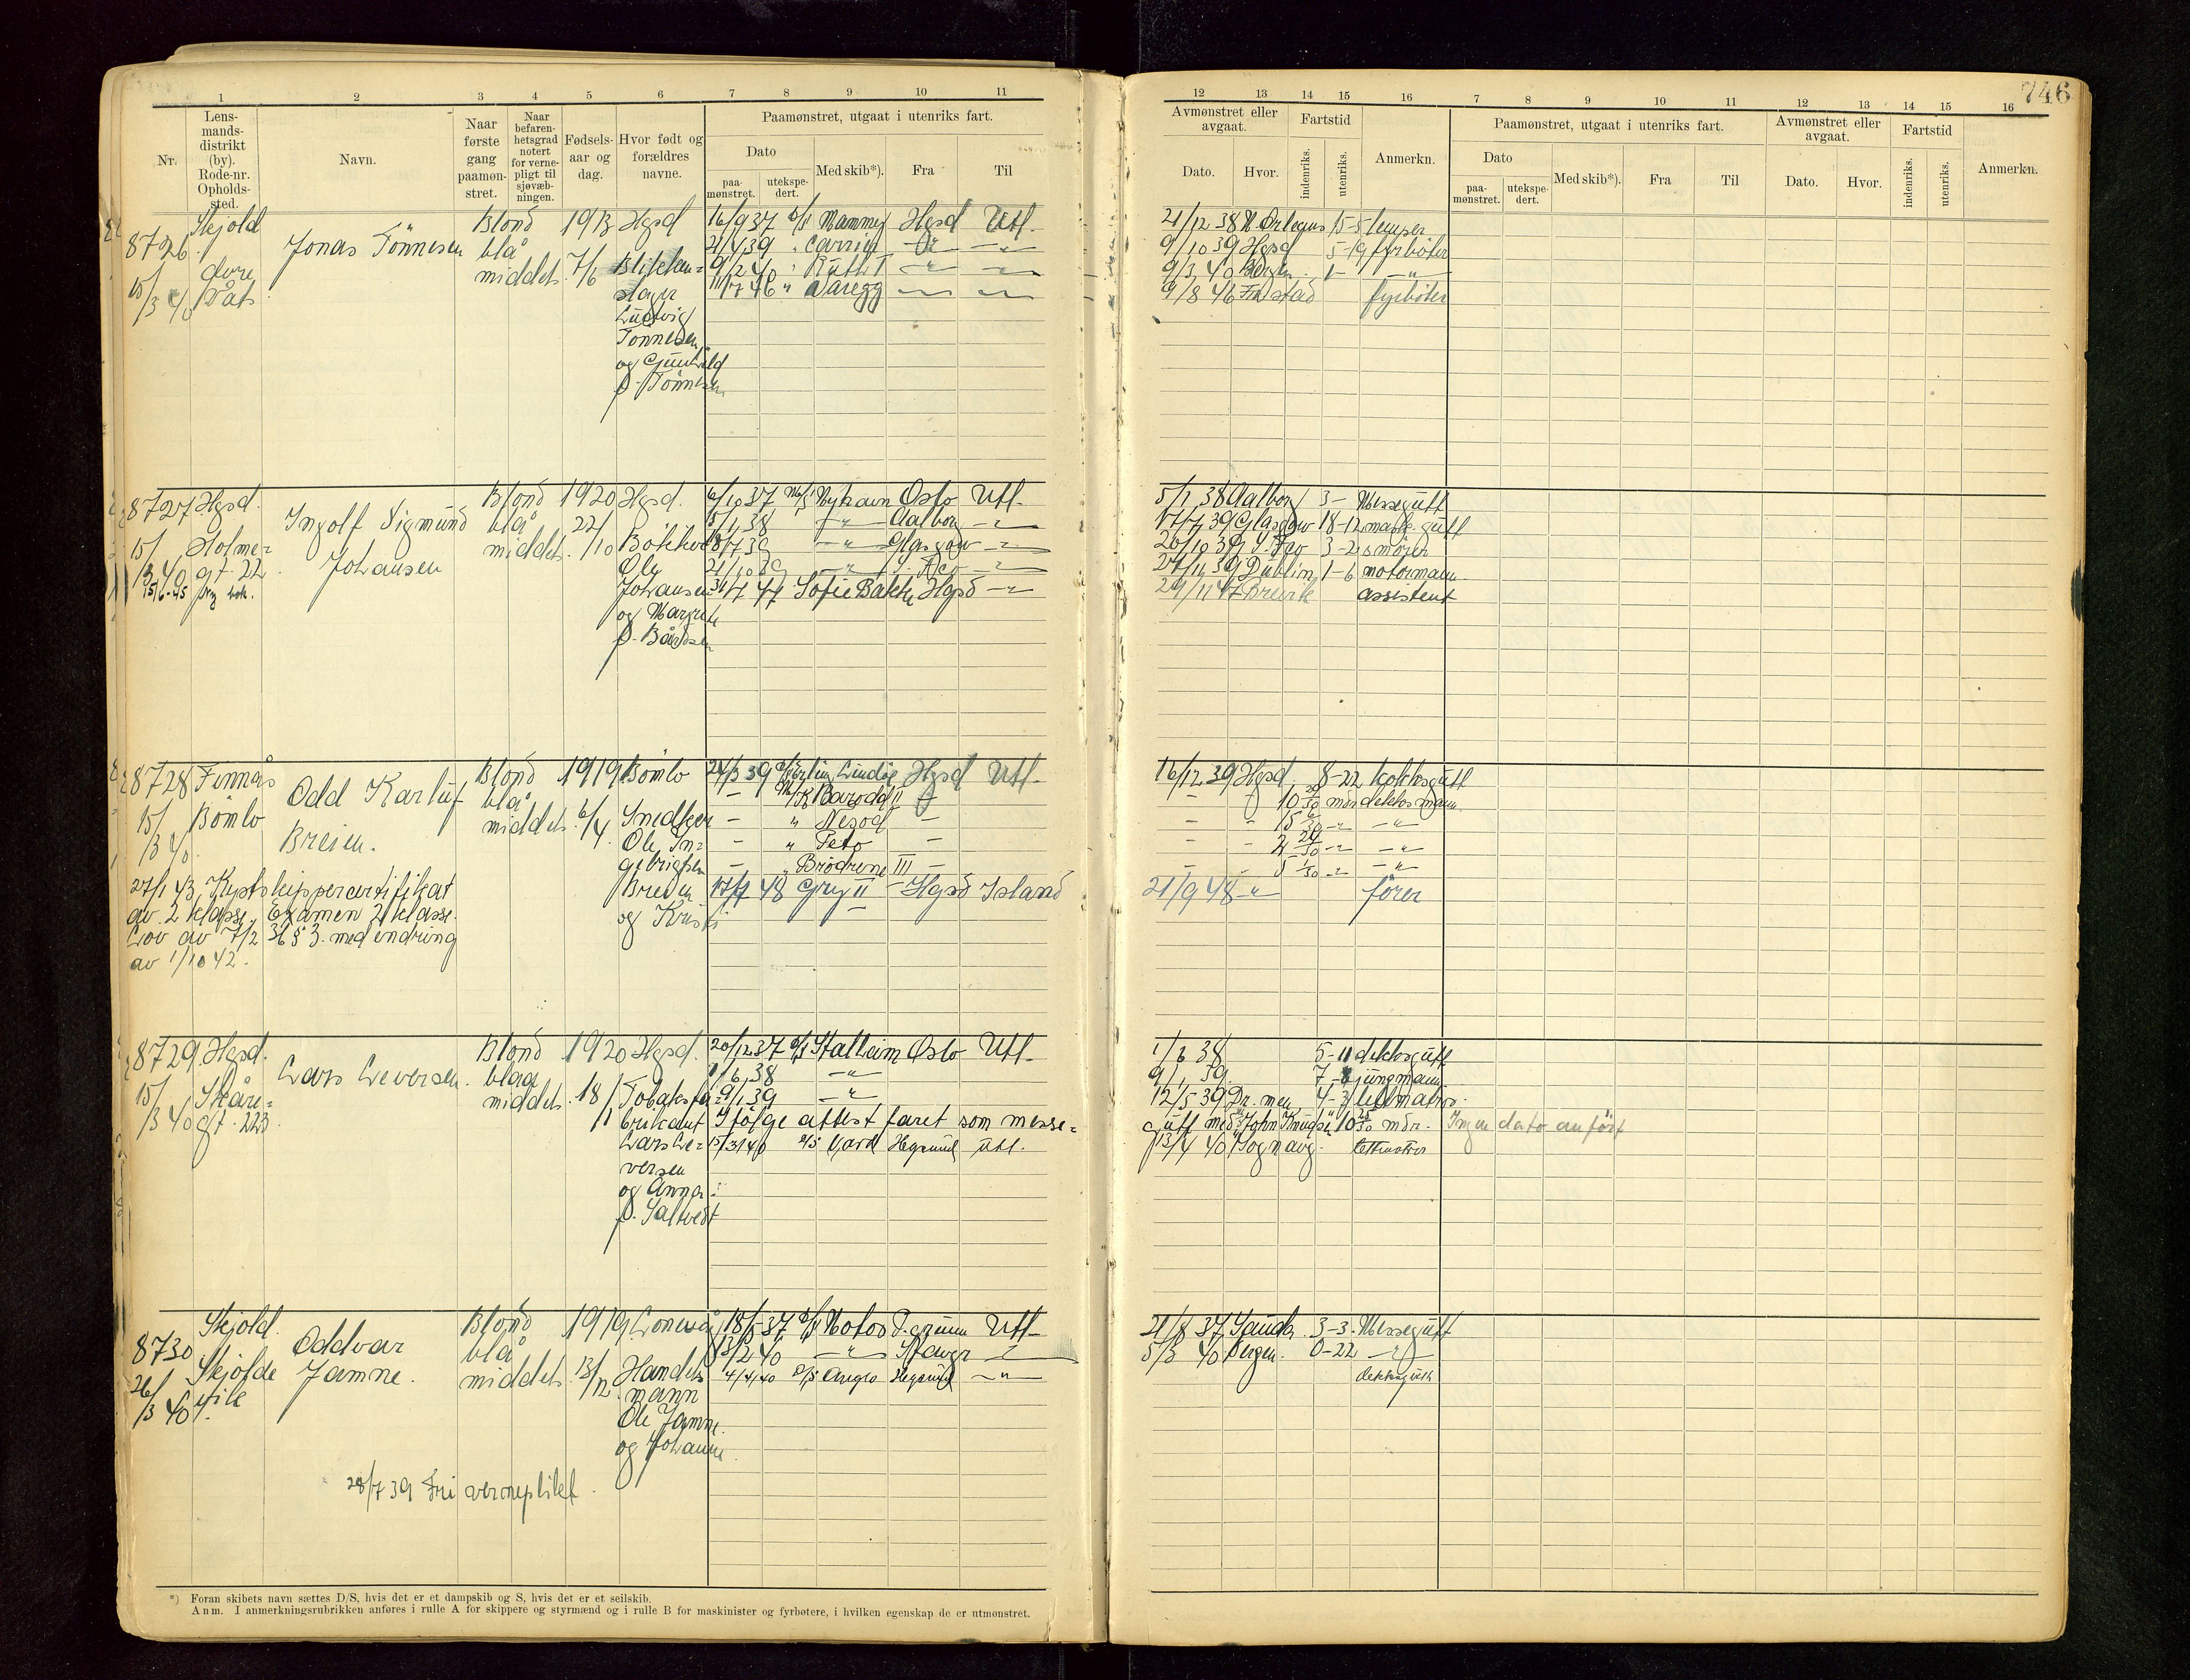 746
1 2 3 4 5 6 7 8 9 10 11
Nr.
Lens-
mands-
distrikt
(by).
Rode-nr.
Opholds-
sted.
Navn.
Naar
første
gang
paamøn-
stret.
Naar
befaren-
hetsgrad
notert
for verne-
pligt til
sjøvæb-
ningen.
Fødsels-
aar og
dag.
Hvor født og
forældres
navne.
Paamønstret, utgaat i utenriks fart.
Dato
paa-
mønstret.
utekspe-
dert.
Med skib*).
Fra
Til
12 13 14 15 16 7 8 9 10 11 12 13 14 15 16
Avmønstret eller
avgaat.
Dato.
Hvor.
Fartstid
indenriks.
utenriks.
Anmerkn.
Paamønstret, utgaat i utenriks fart.
Dato
paa-
mønstret.
utekspe-
dert.
Med skib*).
Fra
Til
Avmønstret eller
avgaat.
Dato.
Hvor.
Fartstid
indenriks.
utenriks.
Anmerkn.
8726
Skjold
15/3 40
Jonas Tönnesen
Blond
blå
middels
1913
7/6
Hgsd
Ludvig
Tönnesen
og Gunhild
f. Tönnesen
16/9 37 Mammy Hgsd Utl.
21/4 39
9/2 40 Ruth I
11/7 46
21/12 38 N. Orleans 15-5 lemper
9/10 39 Hgsd 5-19 fyrböter
9/3 40 Bergen 1-
9/8 46 fyrböter
8727 Hgsd.
15/3 40
Holme-
gt. 22
Ingolf Sigmund
Johansen
Blond
blå
middels
1920
22/10
Hgsd.
Ole
Johansen
og
f. Bårdsen
6/10 37 M/S Nyhavn Oslo Utl.
5/1 38 Aalborg
18/7 39 Glasgow
21/10 39
31/7 47 Sofie Bakke Hgsd
5/1 38 Aalborg 3- Messegutt
17/7 39 Glasgow 18-12 mask. gutt
20/10 39 3-2 smörer
27/11 39 Dublin 1-6 motormann
29/11 47 Brevik assistent
8728 Finnås
15/3 40
Bömlo
Odd Karluf
Breien.
27/1 43 Kystskippercertifikat
av 2 klasse. Examen 2 klasse.
Lov av 7/2 36 § 3. med endring
av 1/10 42.
Blond
blå
middels
1919
6/4
Bömlo
Snedker
Ole In-
gebrigtsen
Breien
og Kristi
24/3 39 Erling Lindöe Hgsd Utl.
Barodd II
Nesod
Feto
Brödrene III
17/7 48 Gry II Hgsd Island
16/12 39 Hgsd. 8-22 kokksgutt
dekksmann
21/9 48 förer
8729 Hgsd.
15/3 40
Skåre-
gt. 223
Lars Leversen.
Blond
blaa
middels
1920
18/11
Hgsd.
Tobaksfa-
brikant
Lars Le-
versen
og Anna
f. Saltvedt
20/12 37 Stalheim Oslo Utl.
1/6 38
9/1 39
Ifölge attest faret som messe-
gutt med John Knudsen 10 mdr. Ingen dato anfört
15/3 40 Gard Hgsund Utl.
1/6 38 5-11 dekksgutt
9/1 39 7-8 jungmann
12/5 39 4-3 lettmatros
13/4 40 lettmatros
8730
Skjold.
26/3 40
Oddvar
Jamne.
28/7 39 Fri verneplikt.
Blond
blå
middels
1919
13/12
Handels
mann
Ole Jamne
og Johanne
Notos Utl.
13/2 40 Stavgr
4/4 40 Anglo Hgsund
21/8 37 Sauda 3-3 Messegutt
5/3 40 Bergen. 0-22
dekksgutt
*) Foran skibets navn sættes D/S, hvis det er et dampskib og S, hvis det er et seilskib.
Anm. I anmerkningsrubrikken anføres i rulle A for skippere og styrmænd og i rulle B for maskinister og fyrbøtere, i hvilken egenskap de er utmønstret.